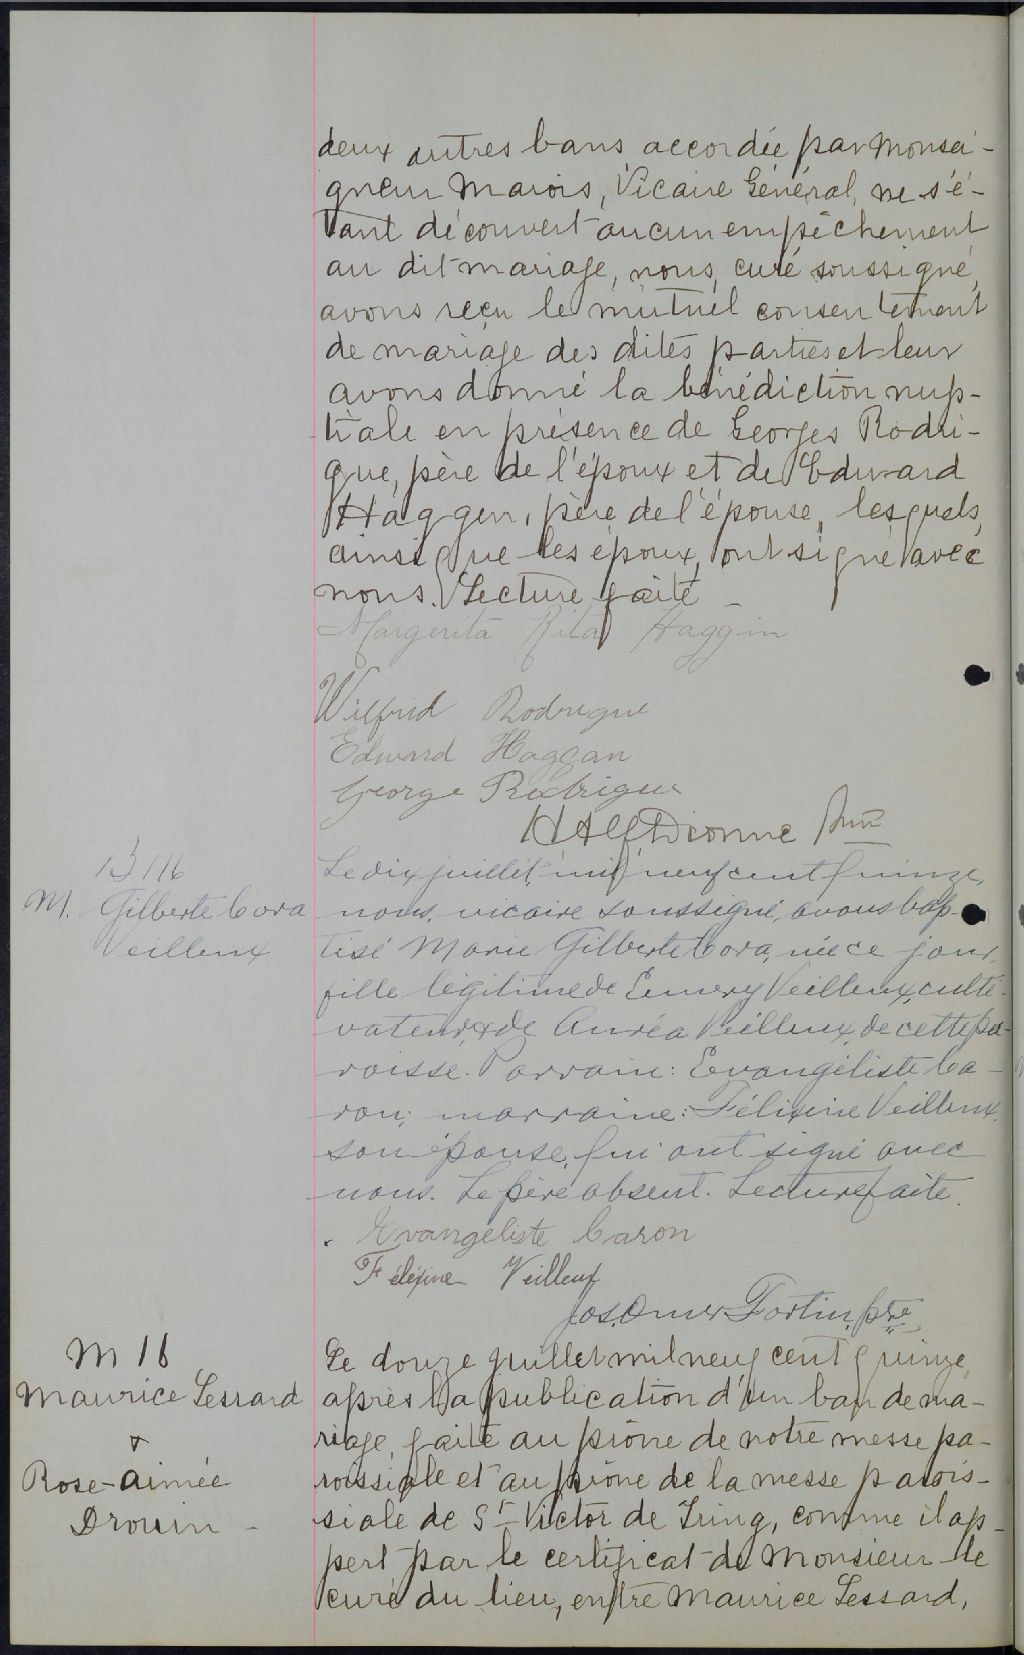 deux autres bans accordée par Monsei-
gneur Marois, Vicaire Général, ne s'é-
tant découvert aucun empêchement
au dit mariage, nous, curé soussigné,
avons reçu le mutuel consentement
de mariage des dites parties et leur
avons donné la bénédiction nup-
tiale en présence de Georges Rodri-
gue, père de l'époux et de Edward
Haggen, père de l'épouse, lesquels,
ainsi que les époux, ont signé avec
nous. Lecture faite
Margerita Rita Haggin
Wilfrid Rodrigue
Edward Haggan
George Rodrigue
H Alf Dionne
B 116
M. Gilberte Cora
Veilleux
Le dix juillet, mil neuf cent quinze,
nous, vicaire soussigné, avons bap-
tisé Marie Gilberte Cora, née ce jour,
fille légitime de Emery Veilleux, culti-
vateur, & de Auréa Veilleux, de cette pa-
roisse. Parrain: Evangéliste Ca-
ron; marraine: Félixine Veilleux,
son épouse, qui ont signé avec
nous. Le père absent. Lecture faite.
Evangeliste Caron
Féléxine Veilleux
Jos. Omer Fortin, ptre
M 16
Maurice Lessard
&
Rose-Aimée
Drouin -
Le douze juillet mil neuf cent quinze
après la publication d'un ban de ma-
riage faite au prône de notre messe pa-
roissiale et au prône de la messe parois-
siale de St Victor de Tring, comme il ap-
pert par le certificat de Monsieur le
curé du lieu, entre Maurice Lessard,